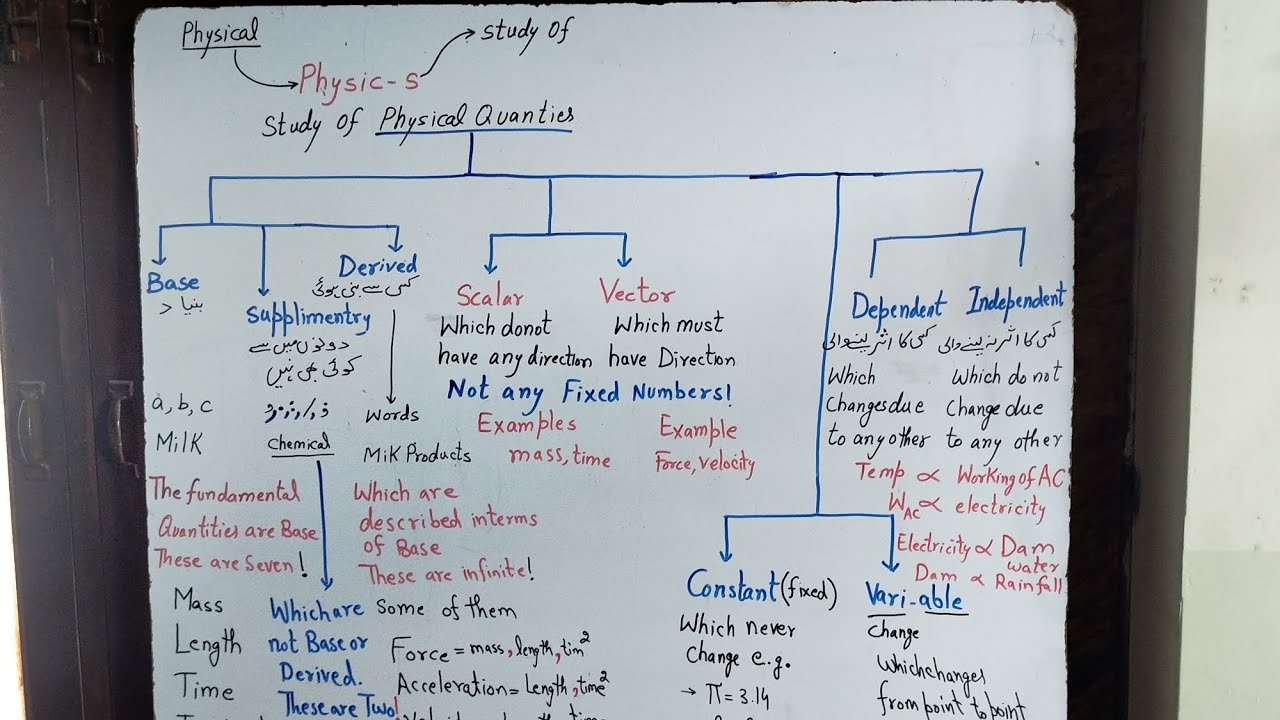 Physical
study of
Physic-s
Study of Physical Quanties
Base
بنیاد
Supplimentry
دونوں میں سے
کوئی بھی نہیں
Derived
کسی سے بنی ہوئی
a, b, c
Milk
Chemical
Words
Milk Products
The fundamental
Quantities are Base
These are Seven!
Mass
Length
Time
Which are
not Base or
Derived.
These are Two!
Which are
described interms
of Base
These are infinite!
Some of them
Force = mass, length, tim²
Acceleration = Length, time²
Scalar
Which donot
have any direction
Vector
Which must
have Direction
Not any Fixed Numbers!
Examples
mass, time
Example
Force, velocity
Constant (fixed)
Which never
Change e.g.
→ π = 3.14
Vari-able
Change
Which changes
from point to point
Dependent
کسی کا اثر لینے والی
Which
Changes due
to any other
Independent
کسی کا اثر نہ لینے والی
Which do not
Change due
to any other
Temp ∝ Working of AC
W_AC ∝ electricity
Electricity ∝ Dam water
Dam ∝ Rainfall